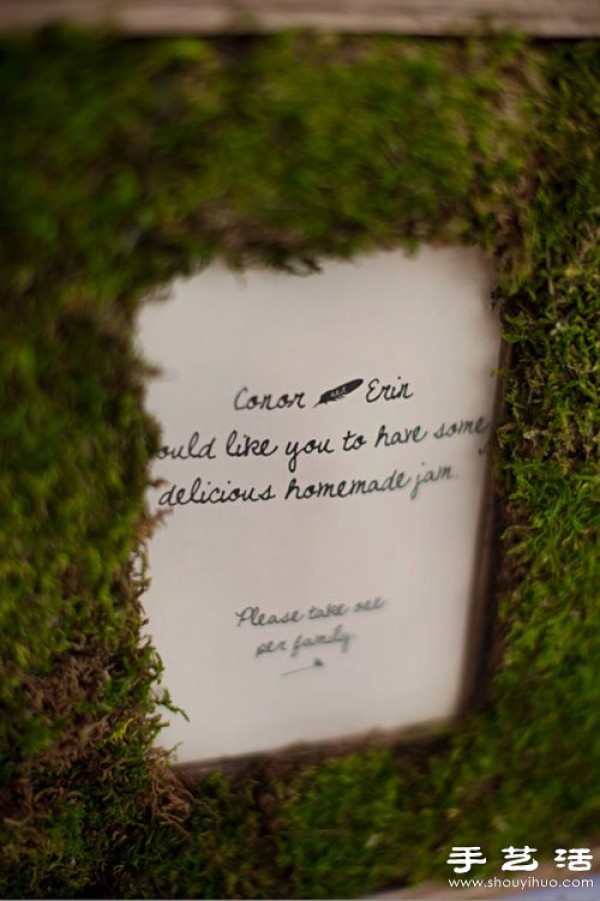 Conor and Erin
ould like you to have some
delicious homemade jam.
Please take one
per family
手艺活
www.shouyihuo.com